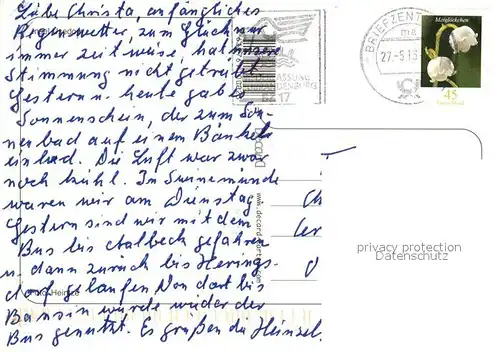 Liebe Christa, anfängliches
Regenwetter, zum Glück nur
immer zeitweise, hat unsere
Stimmung nicht getrübt.
Gestern u. heute gab es
Sonnenschein, der zum Son-
nenbad auf einem Bänkchen
einlud. Die Luft war zwar
noch kühl. In Swinemünde
waren wir am Dienstag
Gestern sind wir mit dem
Bus bis Ahlbeck gefahren
u. dann zurück bis Herings-
dorf gelaufen Von dort bis
Bansin wurde wieder der
Bus genutzt. Es grüßen die Heinzel.
BRIEFZENTR
27.-5.15
Maiglöckchen
45
17
www.
privacy protection
Datenschutz